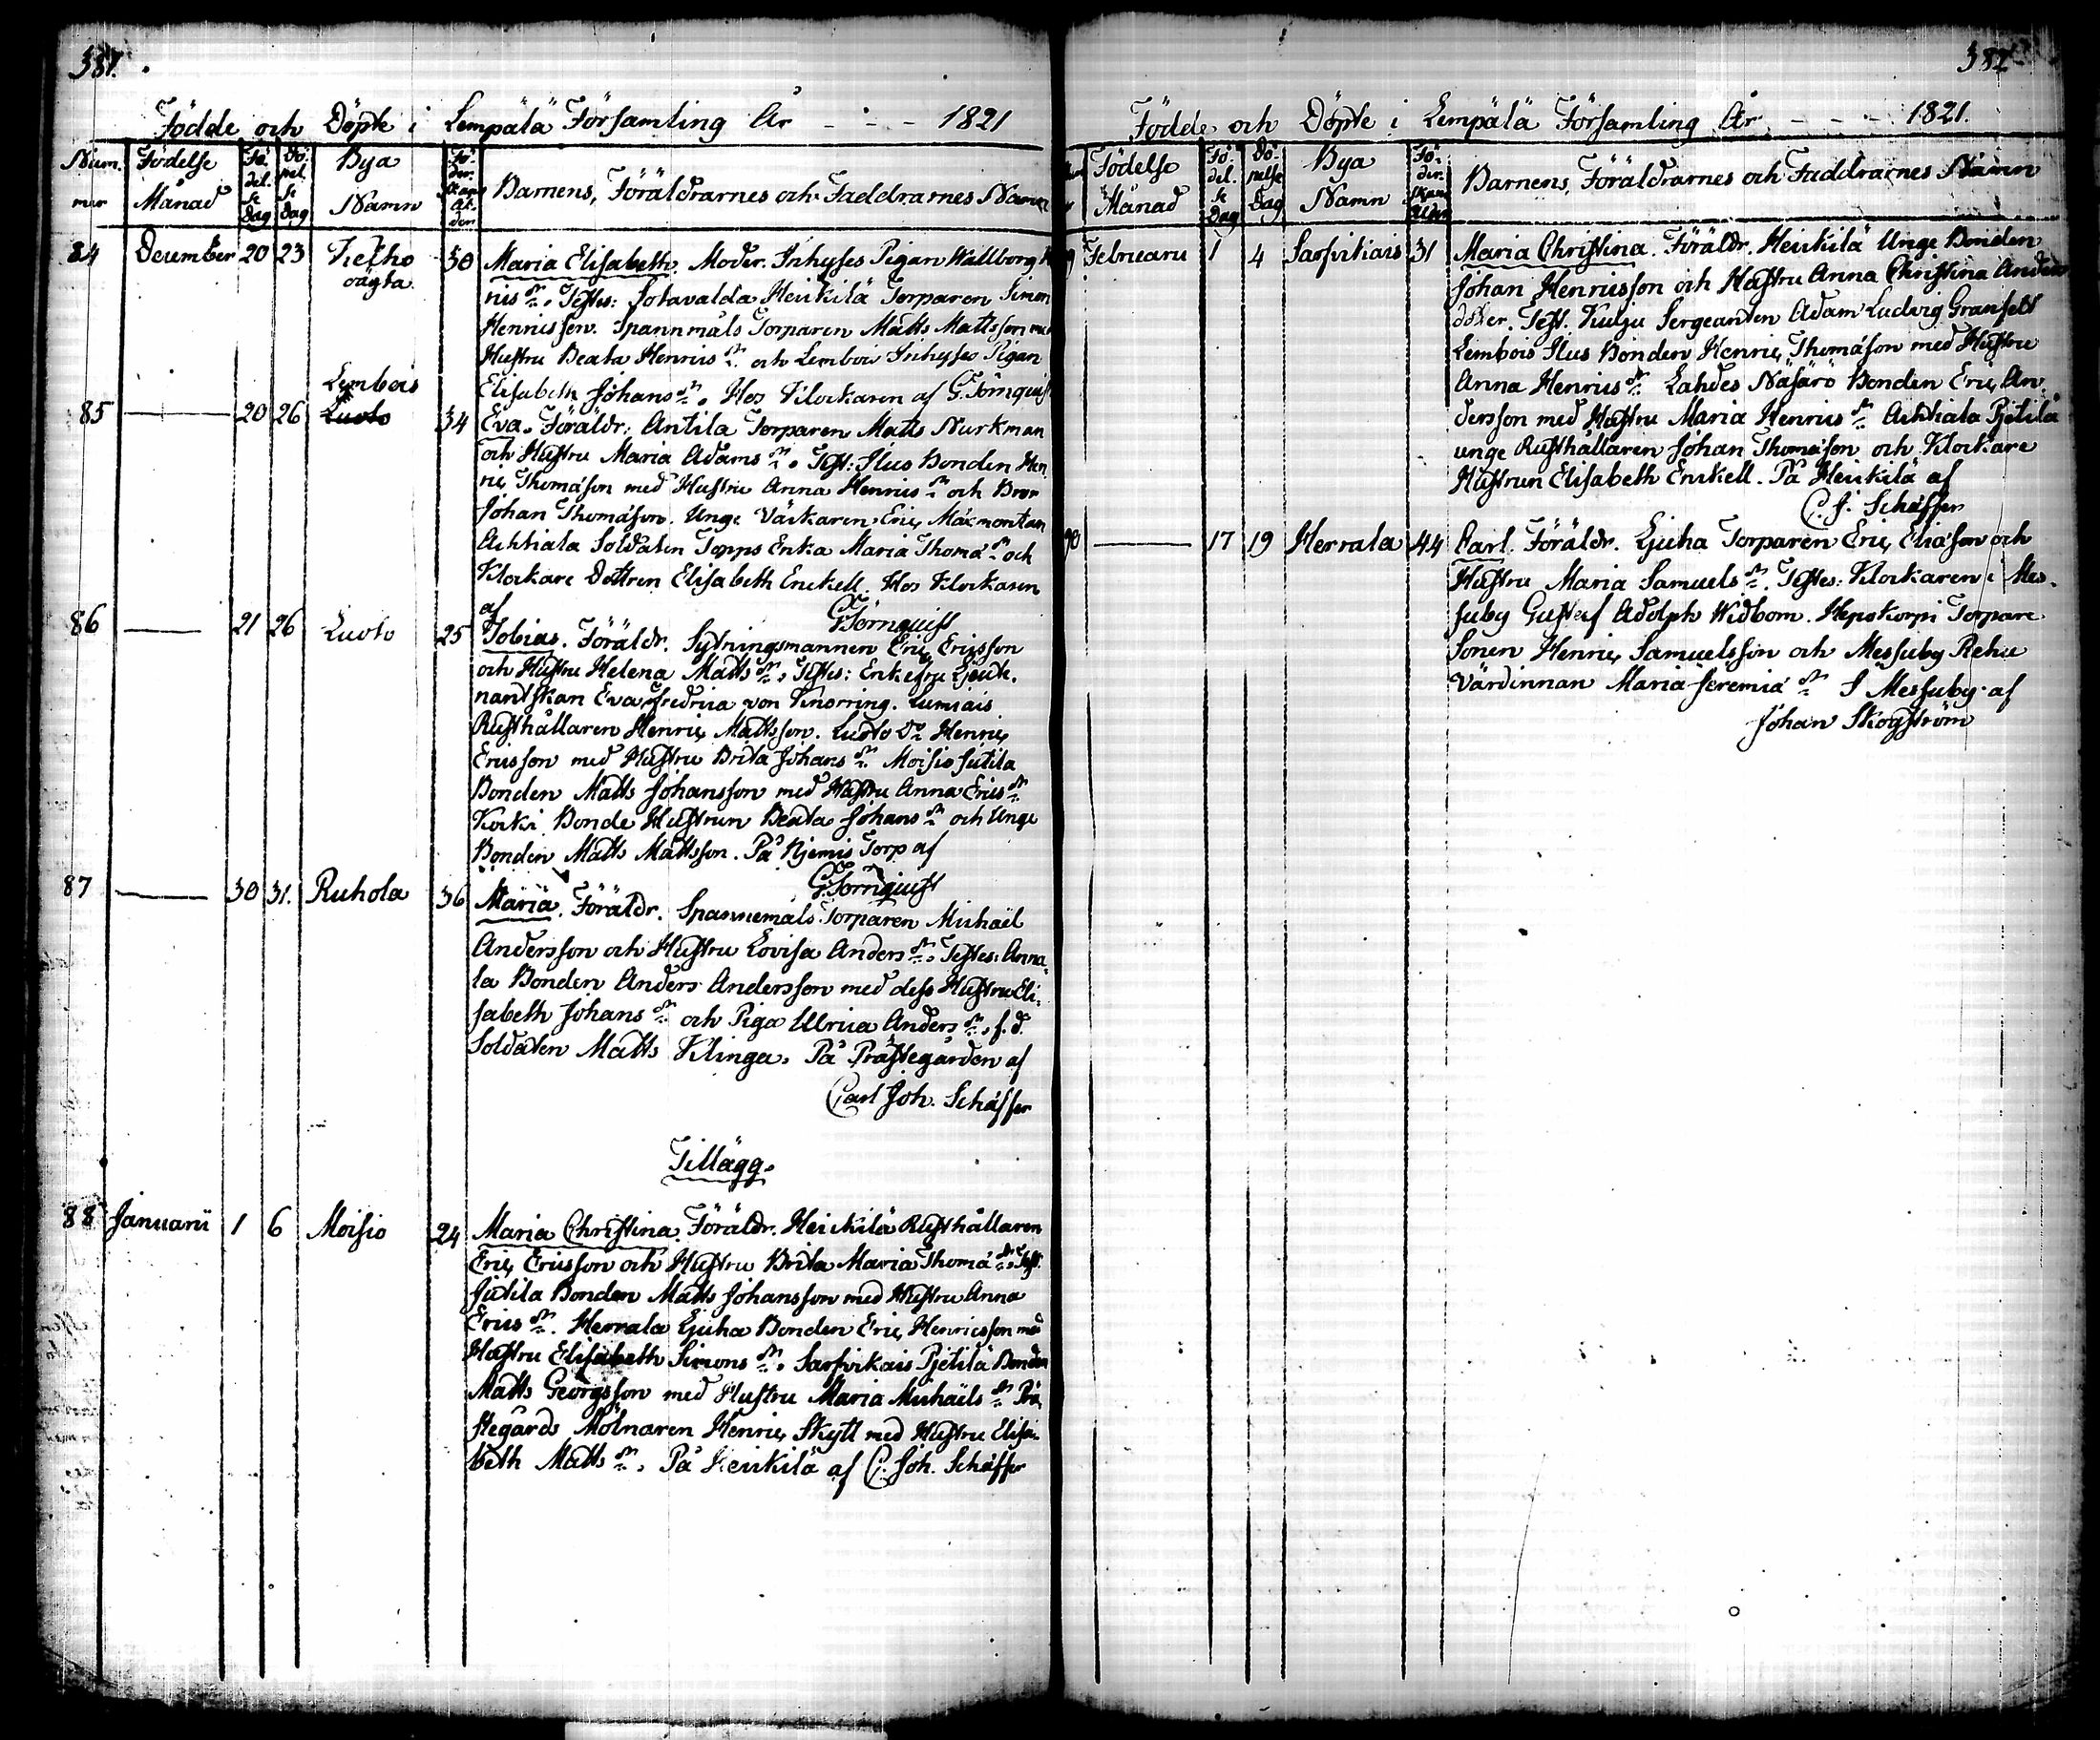 381.
Födde och Döpte i Lempälä Församling År - - - 1821
Num-mer Födelse Månad Fö-del-se Dag Dö-pel-se Dag Bya Namn Barnens, Föräldrarnes och Faddrarnes Namn
84 December 20 23 oägta 30 Maria Elisabeth. Moder. Inhyses Pigan Wallborg
nis dr. Testes: Sotavalda Heickilä Torparen Simon
Henricsson. Spannmåls Torparen Matts Mattsson med
Hustru Beata Henrics dr. och Lembois Inhyses Pigan
Elisabeth Johans dr. Hos Klockaren af G. Törnquist
85 — 20 26 Lembois Luoto 34 Eva. Föräldr: Antila Torparen Matts Nurkman
och Hustru Maria Adams dr. Test: Ilus Bonden Hen
ric Thomasson med Hustru Anna Henrics dr. och Bror
Johan Thomasson. Unge Värkaren Eric Maxmontan
Achtiala Soldaten Topps Enka Maria Thomæ dr. och
Klockare Dottren Elisabeth Enckell. Hos Klockaren
af G Törnquist
86 — 21 26 Luoto 25 Tobias. Föräldr. Sytningsmannen Eric Ericsson
och Hustru Helena Matts dr. Testes: Enkefru Ljeute-
nantskan Eva Fredrica von Knorring. Lumiais
Rusthållaren Henric Mattsson. Luoto Do Henric
Ericsson med Hustru Brita Johans dr. Moisio Jutila
Bonden Matts Johansson med Hustru Anna Erics dr.
Kocki Bonde Hustrun Beata Johans dr. och Unge
Bonden Matts Mattsson. På Njemis Torp af
G. Törnquist
87 — 30 31. Ruhola 36 Maria. Föräldr. Spannemåls Torparen Michaël
Andersson och Hustru Lovisa Anders dr. Testes: Anna-
la Bonden Anders Andersson med dess Hustru Eli-
sabeth Johans dr. och Piga Ulrica Anders dr. f. d.
Soldaten Matts Klinga. På Prästegården af
Carl Joh. Schäffer
Tillägg.
88 Januarii 1 6 Moisio 24 Maria Christina. Föräldr. Heickilä Rusthållaren
Eric Ericsson och Hustru Brita Maria Thomæ dr. Test.
Jutila Bonden Matts Johansson med Hustru Anna
Erics dr. Herrala Ljuha Bonden Eric Henricsson med
Hustru Elisabeth Simons dr. Sarfvikais Pjetilä Bonden
Matts Georgsson med Hustru Maria Michaëls dr. Prä
stegårds Mölnaren Henric Skytt med Hustru Elisa-
beth Matts dr. På Heickilä af C. Joh. Schäffer
382
Födde och Döpte i Lempälä Församling År - - - 1821.
Födelse Månad Fö-del-se Dag Dö-pelse Dag Bya Namn Barnens, Föräldrarnes och Faddrarnes Namn
Februarii 1 4 Sarfvikais 31 Maria Christina. Föräldr. Heickilä Unge Bonden
Johan Henricsson och Hustru Anna Christina Anders
dotter. Test. Kulju Sergeanten Adam Ludvig Granfelt
Lembois Ilus Bonden Henric Thomasson med Hustru
Anna Henrics dr. Lahdes Näsärö Bonden Eric An
dersson med Hustru Maria Henrics dr. Achtiala Pjetilä
unge Rusthållaren Johan Thomasson och Klockare
Hustrun Elisabeth Enckell. På Heickilä af
C. J. Schäffer
90 — 17 19 Herrala 44 Carl. Föräldr. Ljuha Torparen Eric Eliasson och
Hustru Maria Samuels dr. Testes: Klockaren i Mes-
suby Gustaf Adolph Widbom. Hepokorpi Torpare
Sonen Henric Samuelsson och Messuby Rehu
Värdinnan Maria Jeremiæ dr. I Messuby af
Johan Skogström